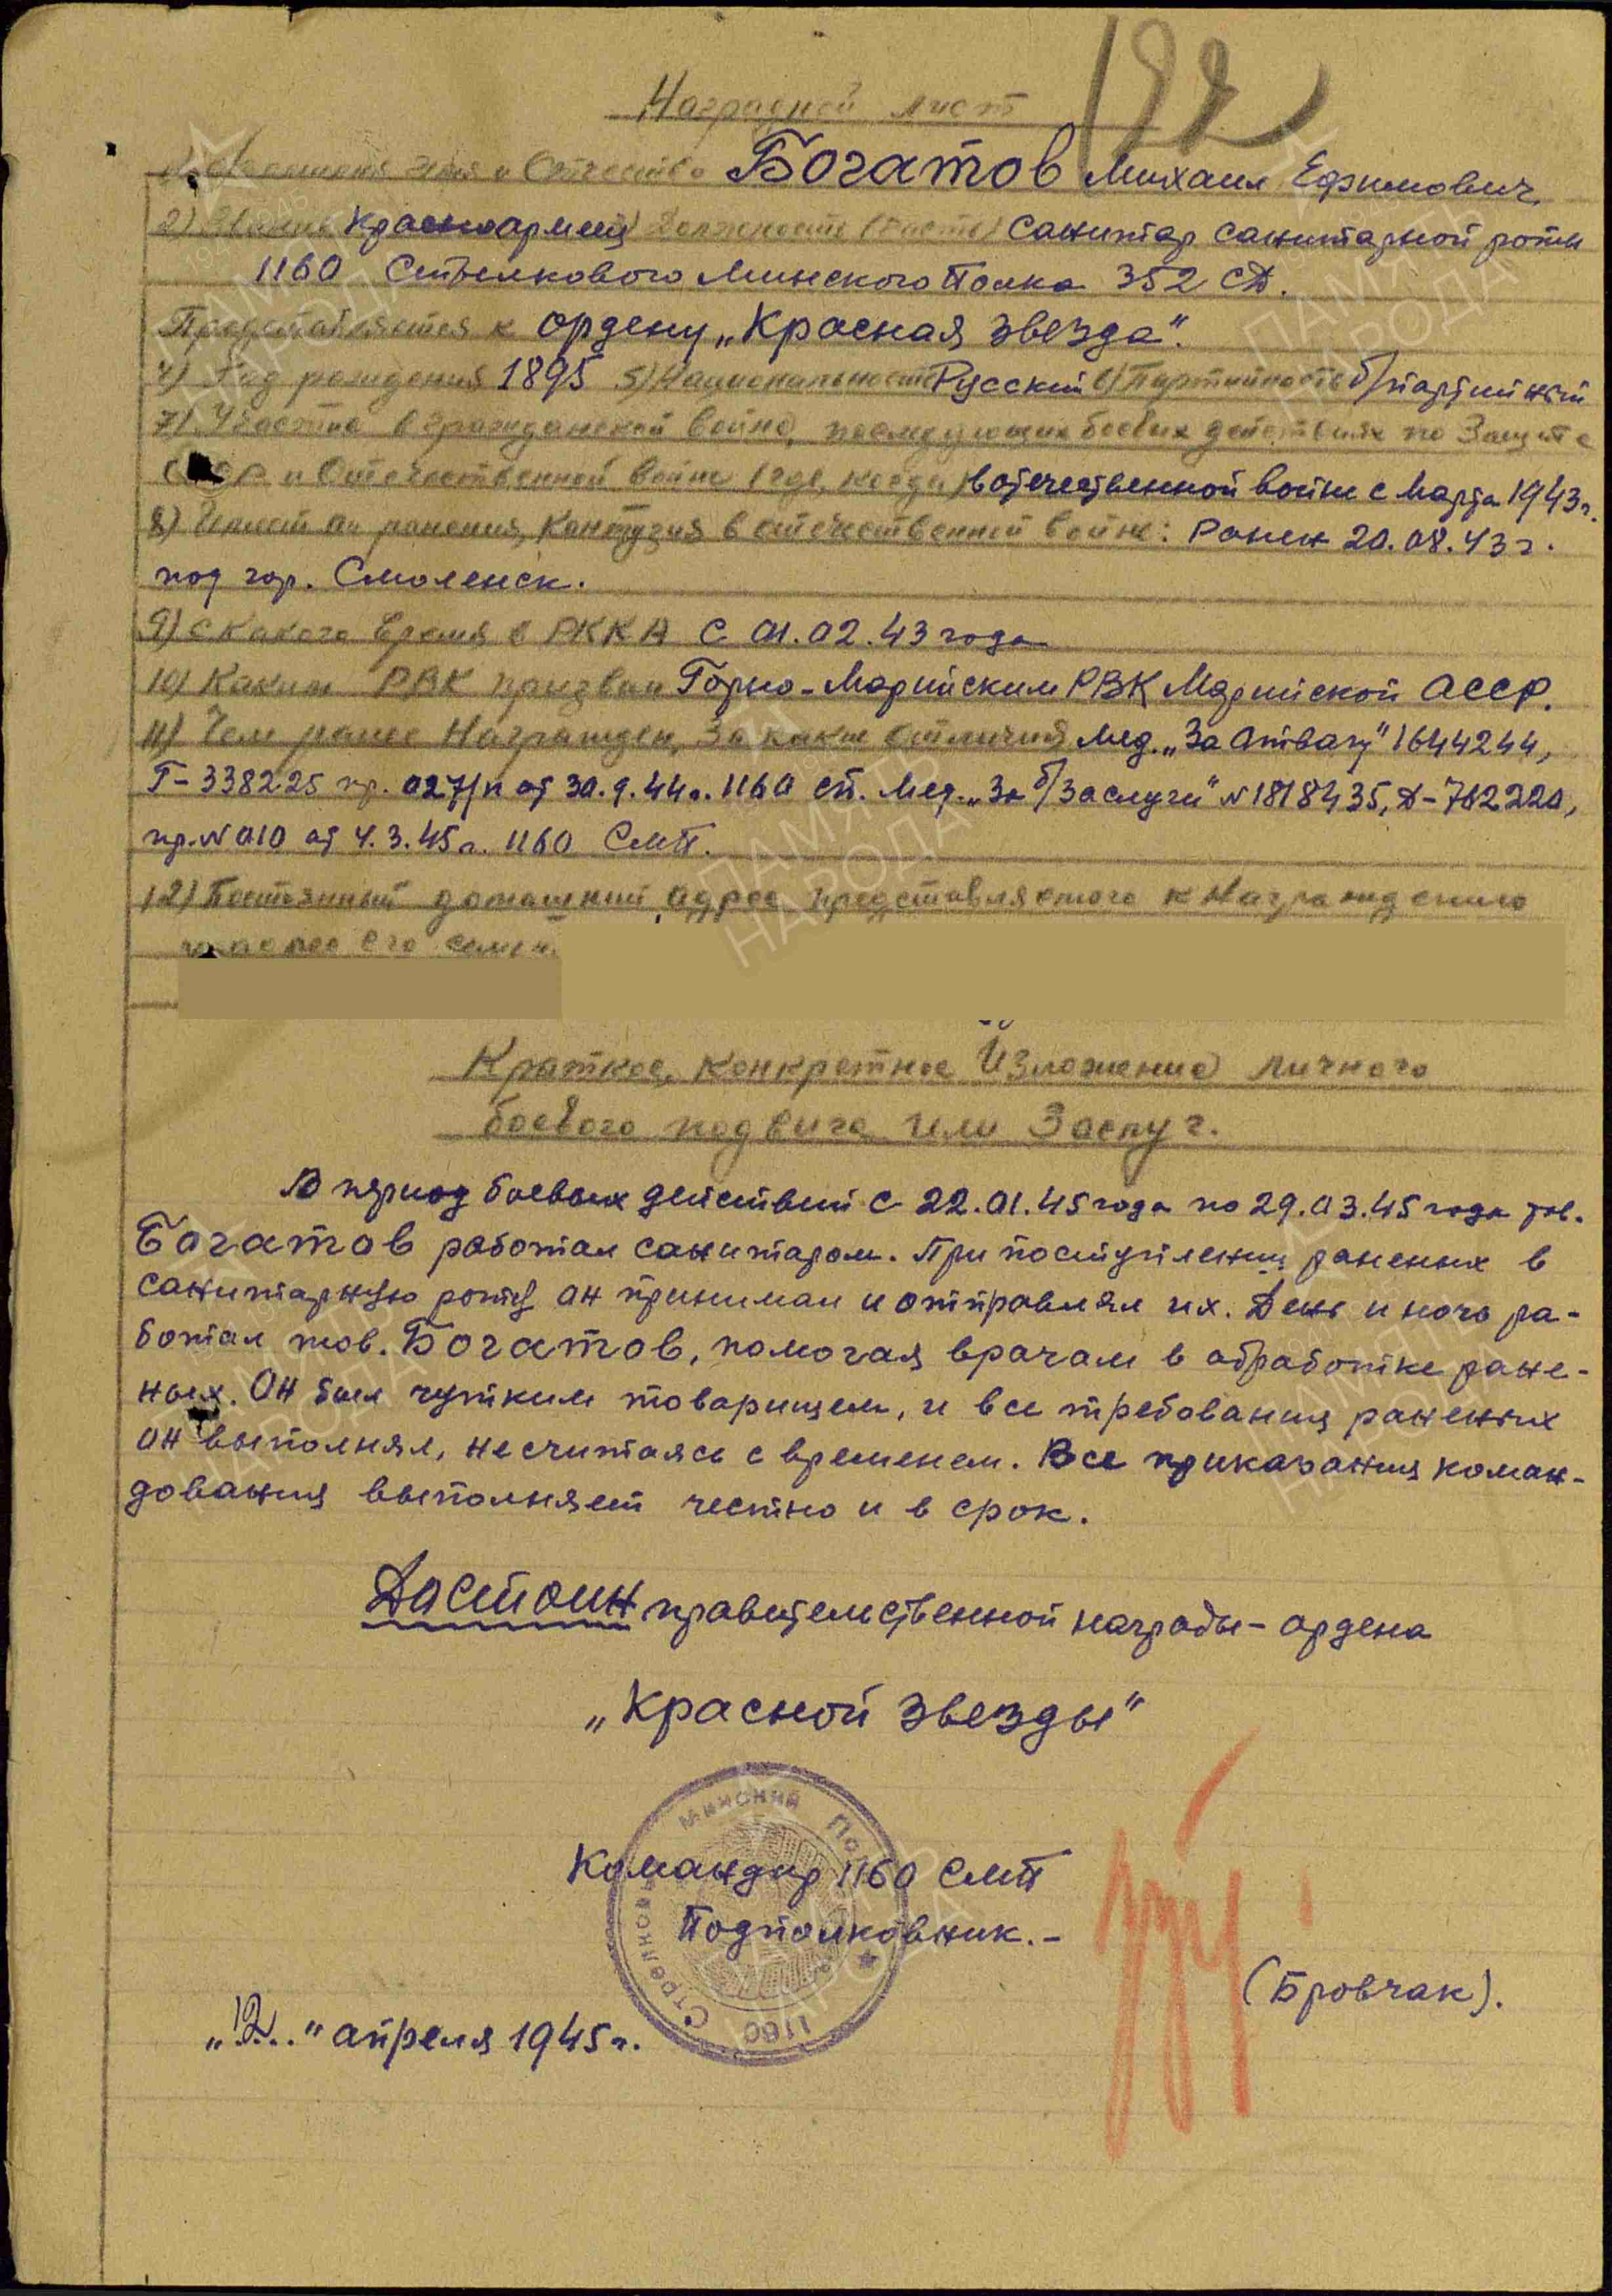 192
Наградной лист
Фамилия Имя и Отчество Богатов Михаил Ефимович.
2) Звание Красноармеец Должность (часть) Санитар санитарной роты
1160 Стрелкового Минского Полка 352 СД.
Представляется к ордену „Красная звезда".
4) Год рождения 1895 5) Национальность Русский 6) Партийность б/партийный
7) Участие в гражданской войне, последующих боевых действиях по защите
СССР и Отечественной войне (где, когда) в отечественной войне с марта 1943 г.
8) Имеет ли ранения, контузия в отечественной войне: Ранен 20.08.43 г.
под гор. Смоленск.
9) с какого время в РККА с 01.02.43 года
10) Каким РВК призван Горно-Марийским РВК Марийской АССР.
11) Чем ранее Награжден, за какие отличия Мед. „За Отвагу" 1644244,
Г-338225 пр. 027/н от 30.9.44 г. 1160 сп. Мед. „За б/заслуги" N 1818435, Д-762220,
пр. N 010 от 4.3.45 г. 1160 СМП.
12) Постоянный домашний адрес представляемого к Награждению
и адрес его семьи.
Краткое, конкретное Изложение личного
боевого подвига или Заслуг.
В период боевых действий с 22.01.45 года по 29.03.45 года тов.
Богатов работал санитаром. При поступлении раненых в
санитарную роту он принимал и отправлял их. День и ночь ра-
ботал тов. Богатов, помогая врачам в обработке ране-
ных. Он был чутким товарищем, и все требования раненых
он выполнял, не считаясь с временем. Все приказания коман-
дования выполняет честно и в срок.
Достоин правительственной награды - ордена
„Красной звезды"
Командир 1160 СМП
Подполковник. -
(Бровчак).
„12" апреля 1945 г.
1160 Стрелковый Минский По
ПАМЯТЬ НАРОДА